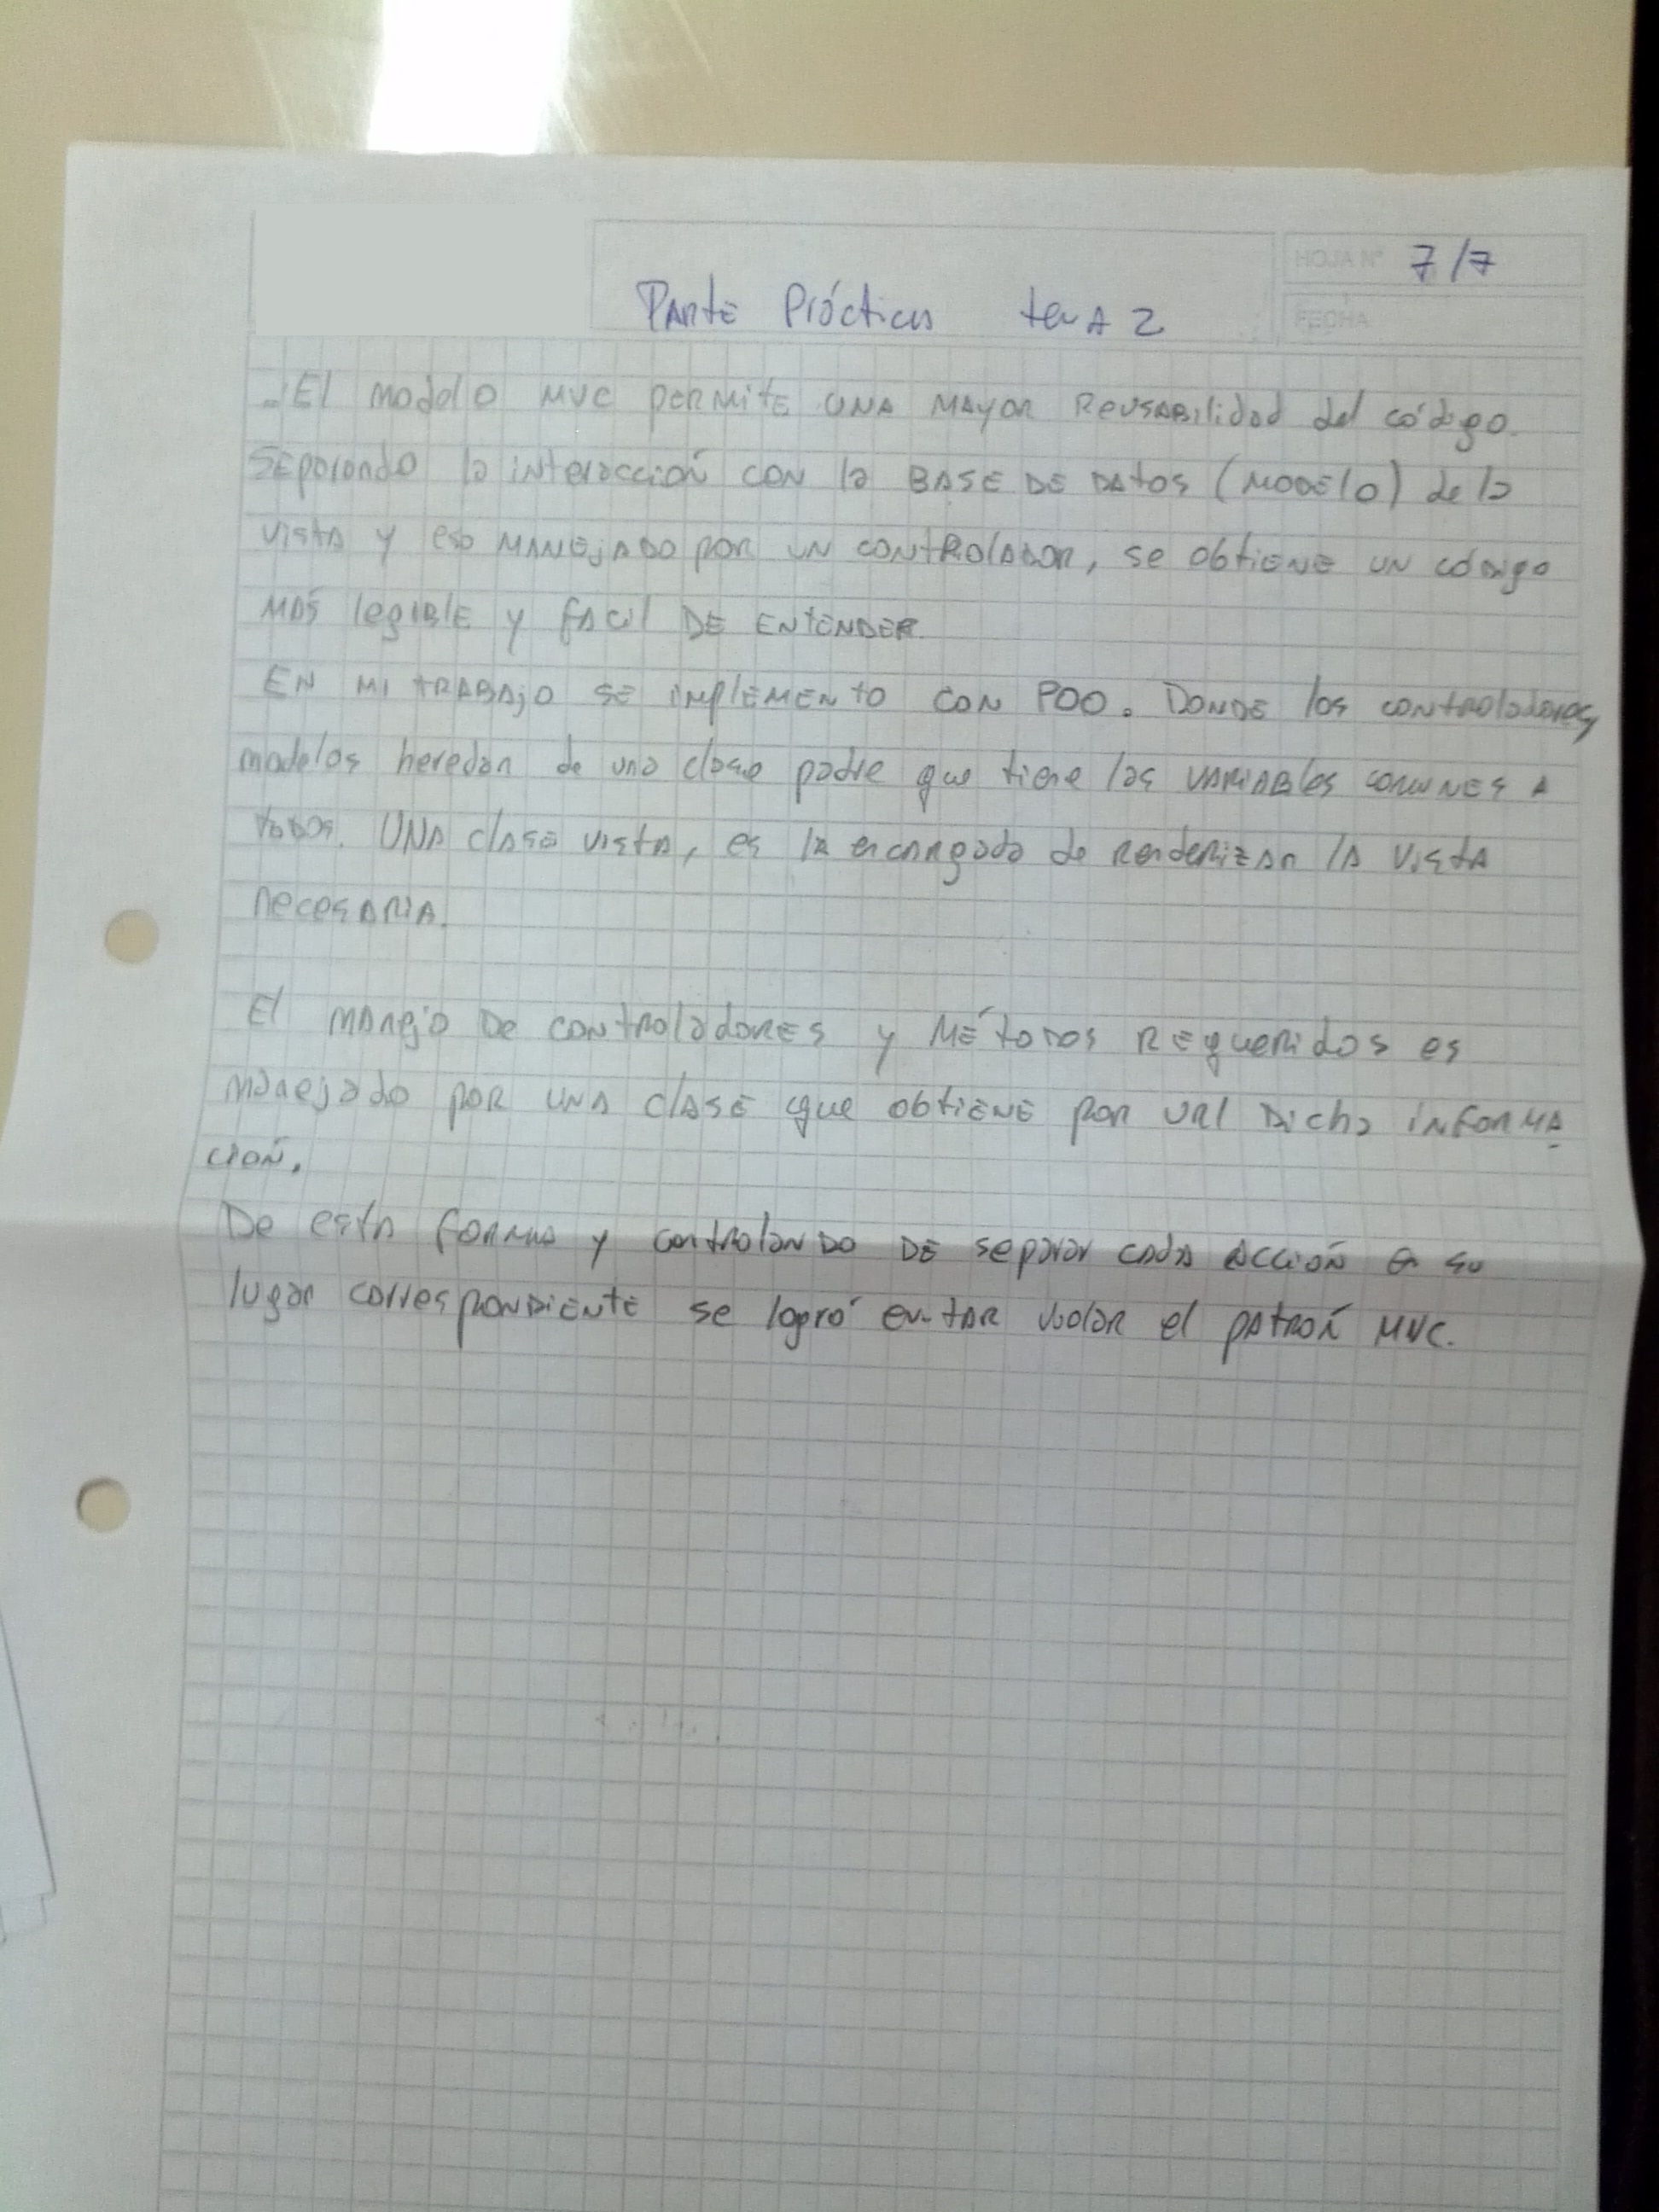 HOJA N° 7/7
Parte Práctica tema 2
FECHA
El modelo MVC permite una mayor reusabilidad del código.
Separando la interacción con la base de datos (modelo) de la
vista y eso manejado por un controlador, se obtiene un código
más legible y facil de entender.
En mi trabajo se implemento con POO. Donde los controladores,
modelos heredan de una clase padre que tiene las variables comunes a
todos. Una clase vista, es la encargada de renderizar la vista
necesaria.
El manejo de controladores y métodos requeridos es
manejado por una clase que obtiene por url dicha informa
ción.
De esta forma y controlando de separar cada acción a su
lugar correspondiente se logró evitar violar el patrón MVC.